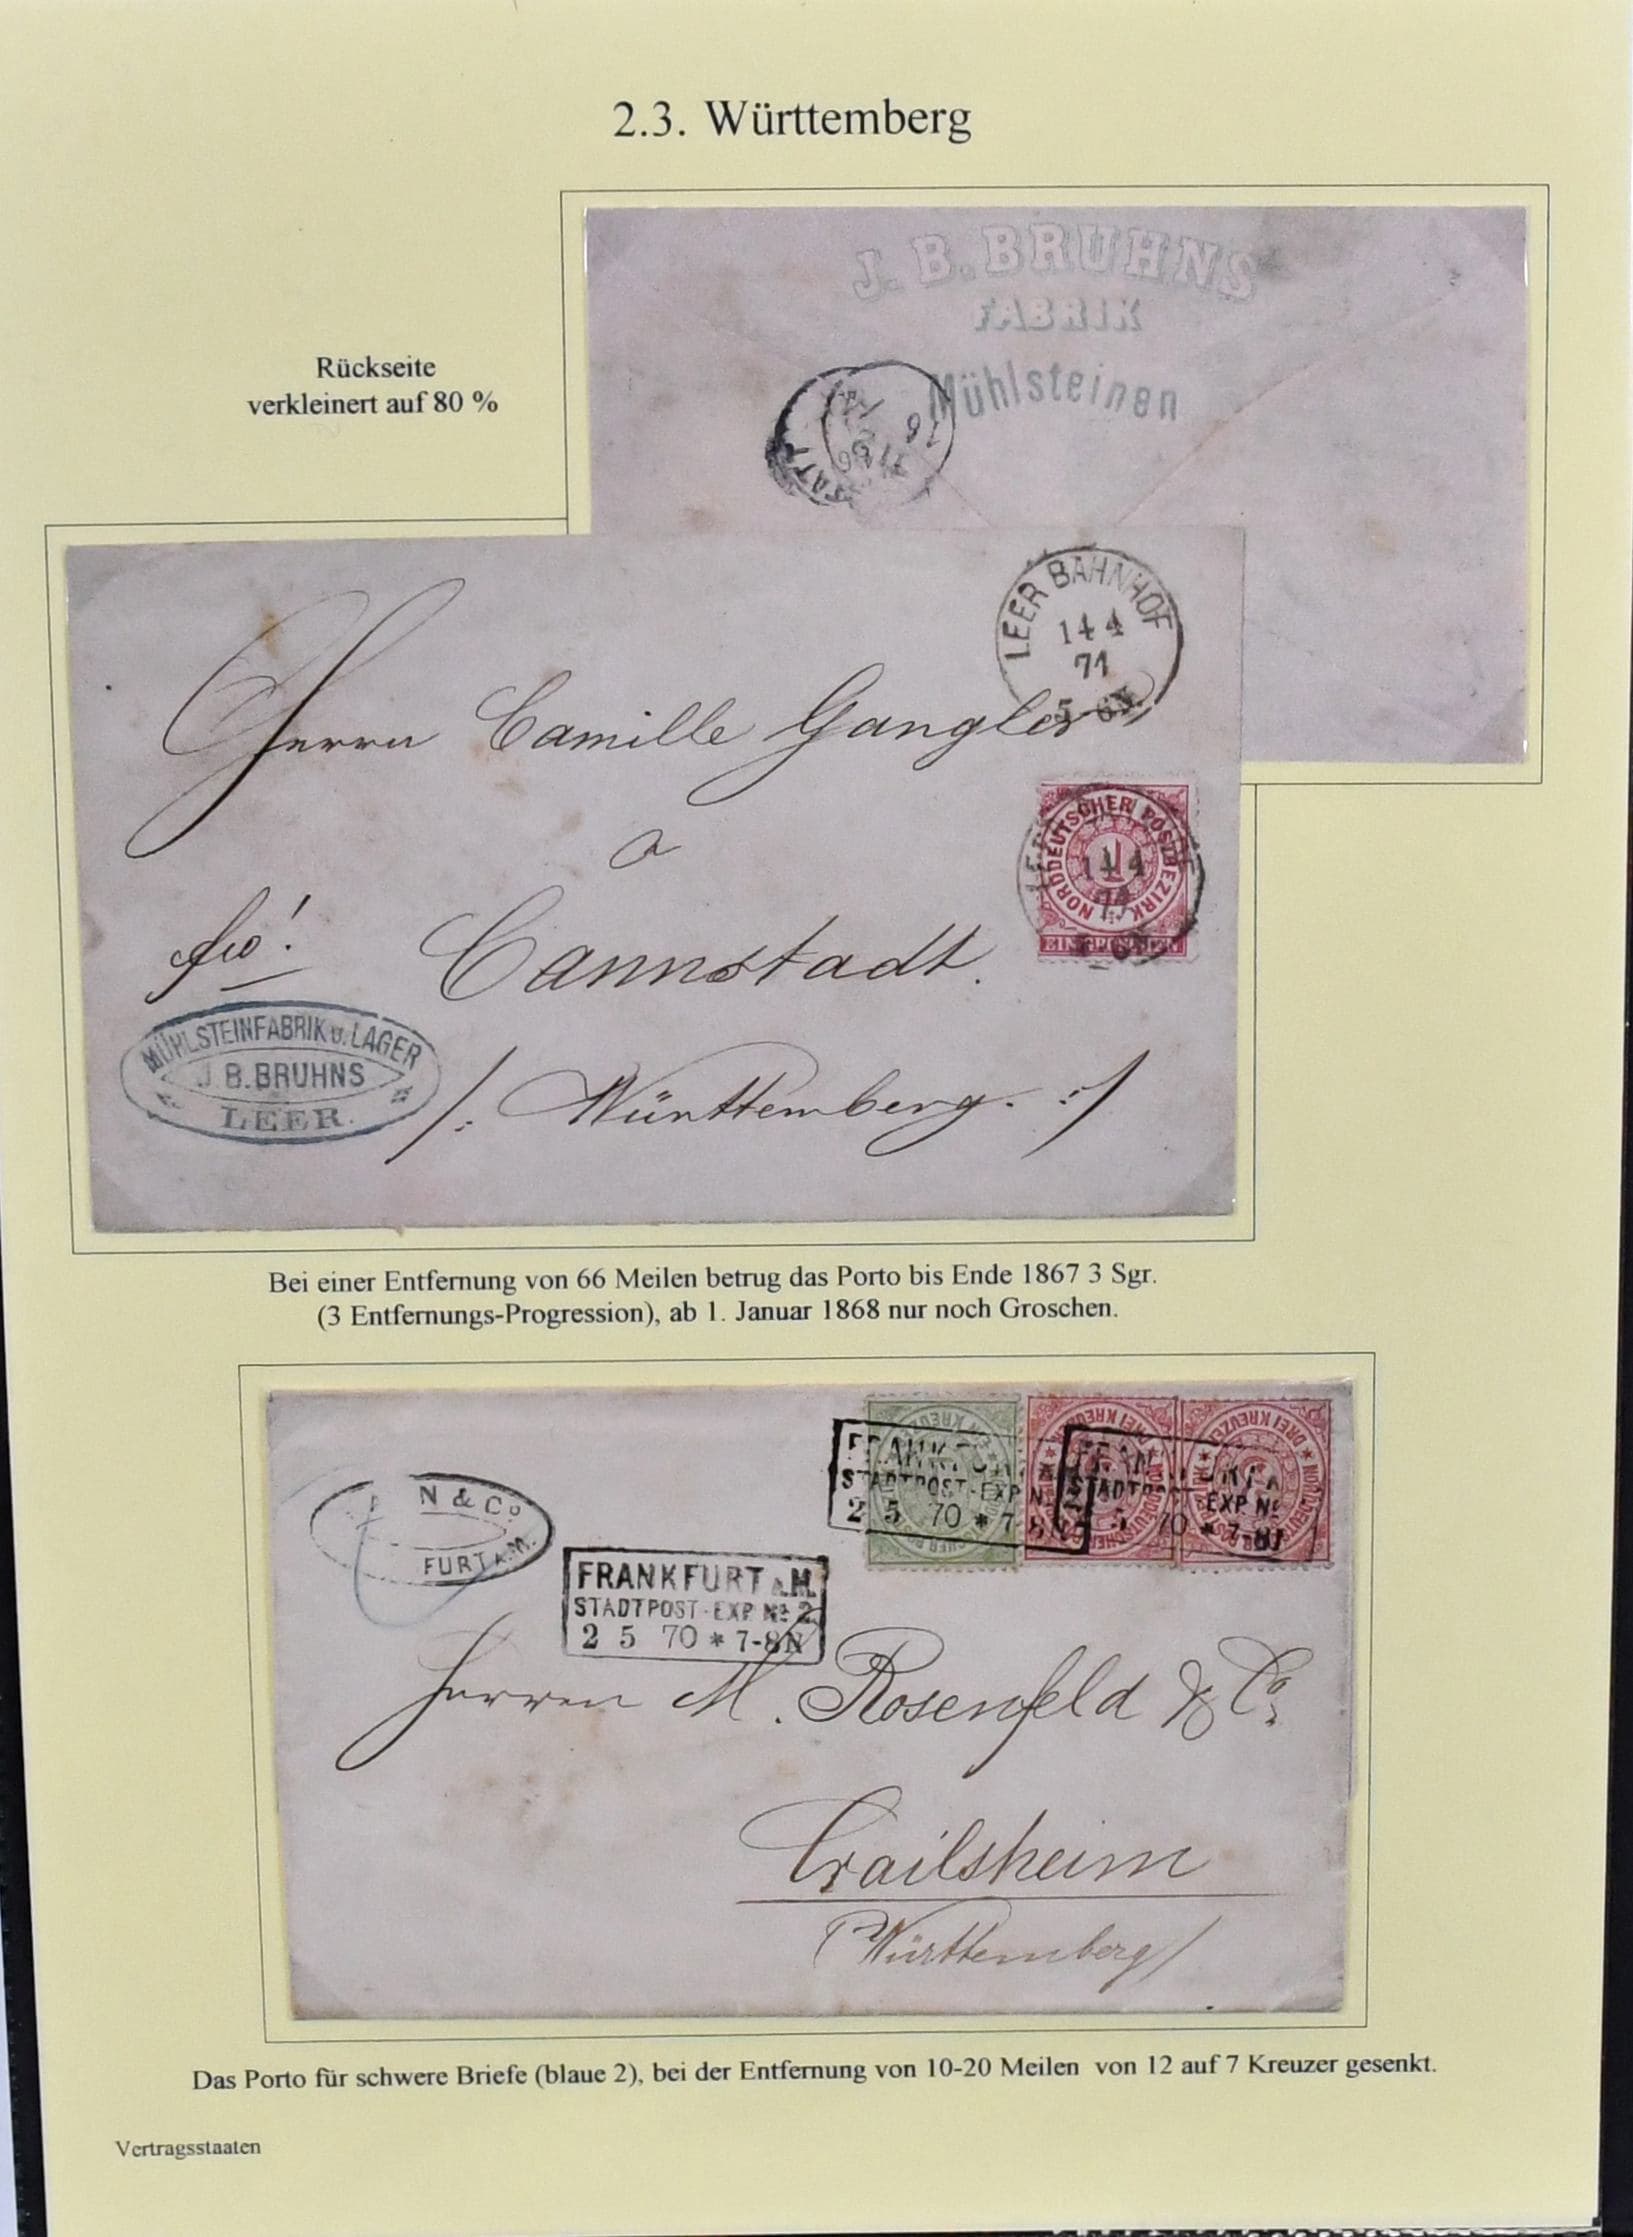 2.3. Württemberg
J. B. BRUHNS
FABRIK
Mühlsteinen
Rückseite
verkleinert auf 80 %
LEER BAHNHOF
14 4
71
5-6N.
Herrn Camille Gangler
a
Cannstadt.
/: Württemberg. :/
fco!
NORDDEUTSCHER POSTBEZIRK
1
EIN GROSCHEN
14 4
71
MÜHLSTEINFABRIK u. LAGER
J. B. BRUHNS
LEER.
Bei einer Entfernung von 66 Meilen betrug das Porto bis Ende 1867 3 Sgr.
(3 Entfernungs-Progression), ab 1. Januar 1868 nur noch Groschen.
N & Co
FURT a.M.
STADTPOST-EXP No
2 5 70 * 7-
DREI KREUZER
EXP No
70 * 7-8N
FRANKFURT a.M.
STADTPOST-EXP. No 2
2 5 70 * 7-8N
Herren M. Rosenfeld & Co.
Crailsheim
(Württemberg)
Das Porto für schwere Briefe (blaue 2), bei der Entfernung von 10-20 Meilen von 12 auf 7 Kreuzer gesenkt.
Vertragsstaaten